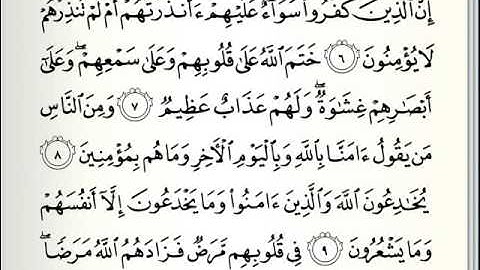 إِنَّ ٱلَّذِينَ كَفَرُوا۟ سَوَآءٌ عَلَيْهِمْ ءَأَنذَرْتَهُمْ أَمْ لَمْ تُنذِرْهُمْ
لَا يُؤْمِنُونَ ٦ خَتَمَ ٱللَّهُ عَلَىٰ قُلُوبِهِمْ وَعَلَىٰ سَمْعِهِمْ ۖ وَعَلَىٰٓ
أَبْصَٰرِهِمْ غِشَٰوَةٌ ۖ وَلَهُمْ عَذَابٌ عَظِيمٌ ٧ وَمِنَ ٱلنَّاسِ
مَن يَقُولُ ءَامَنَّا بِٱللَّهِ وَبِٱلْيَوْمِ ٱلْـَٔاخِرِ وَمَا هُم بِمُؤْمِنِينَ ٨
يُخَٰدِعُونَ ٱللَّهَ وَٱلَّذِينَ ءَامَنُوا۟ وَمَا يَخْدَعُونَ إِلَّآ أَنفُسَهُمْ
وَمَا يَشْعُرُونَ ٩ فِى قُلُوبِهِم مَّرَضٌ فَزَادَهُمُ ٱللَّهُ مَرَضًا ۖ